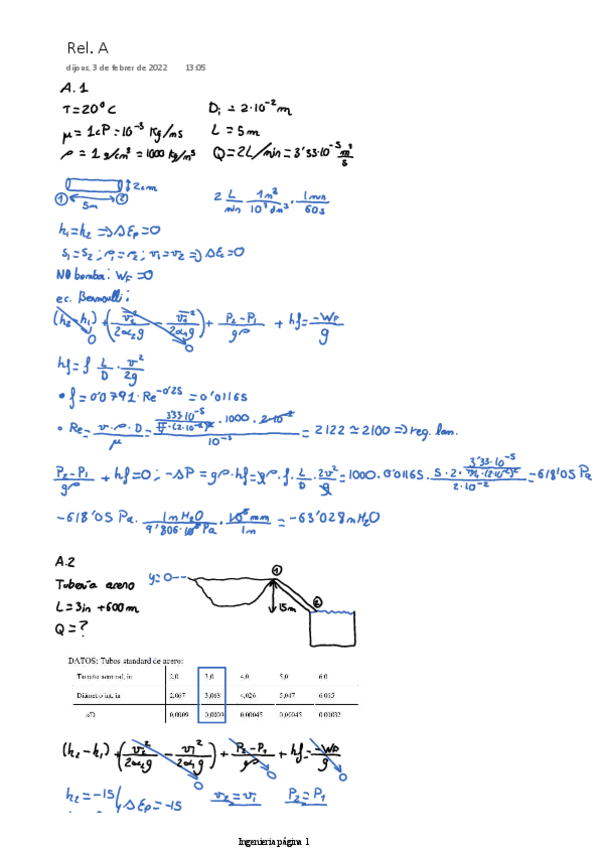 Rel. A
dijous, 3 de febrer de 2022 13:05
A.1
T=20°C
Di = 2·10^-2 m
μ = 1cP = 10^-3 Kg/ms
L = 5m
ρ = 1 g/cm³ = 1000 kg/m³
Q = 2L/min = 3'33·10^-5 m³/s
2cm
① 5m ②
2 L/min · 1m³/10³dm³ · 1min/60s
h₁=h₂ => ΔEp=0
S₁=S₂; ρ₁=ρ₂; v₁=v₂ => ΔEc=0
NO bomba: WF=0
ec. Bernoulli:
(h₂-h₁) + (v₂²/2α₂g - v₁²/2α₁g) + P₂-P₁/gρ + hf = -WF/g
0
0
hf = f L/D · v²/2g
• f = 0'0791·Re^-0'25 = 0'01165
• Re = v·ρ·D/μ = 333·10^-5/π/4·(2·10^-2)² · 1000 · 2·10^-2 / 10^-3 = 2122 ≃ 2100 => reg. lam.
P₂-P₁/gρ + hf=0; -ΔP = gρ·hf = gρ·f·L/D·2v²/g = 1000·0'01165·5·2·3'33·10^-5/π/4·(2·10^-2)²/2·10^-2 = -618'05 Pa
-618'05 Pa · 1mH₂O/9'806·10³Pa · 10³mm/1m = -63'028mH₂O
A.2
Tubería acero
L = 3in + 600m
Q = ?
y=0--
①
15m
②
DATOS: Tubos standard de acero:
Tamaño nominal, in 2,0 3,0 4,0 5,0 6,0
Diámetro int, in 2,067 3,068 4,026 5,047 6,065
ε/D 0,0009 0,0009 0,00045 0,00045 0,00032
(h₂-h₁) + (v₂²/2α₂g - v₁²/2α₁g) + P₂-P₁/gρ + hf = -WF/g
0
0
0
h₂=-15/ΔEp=-15
v₂=v₁
P₂=P₁
Ingenieria página 1